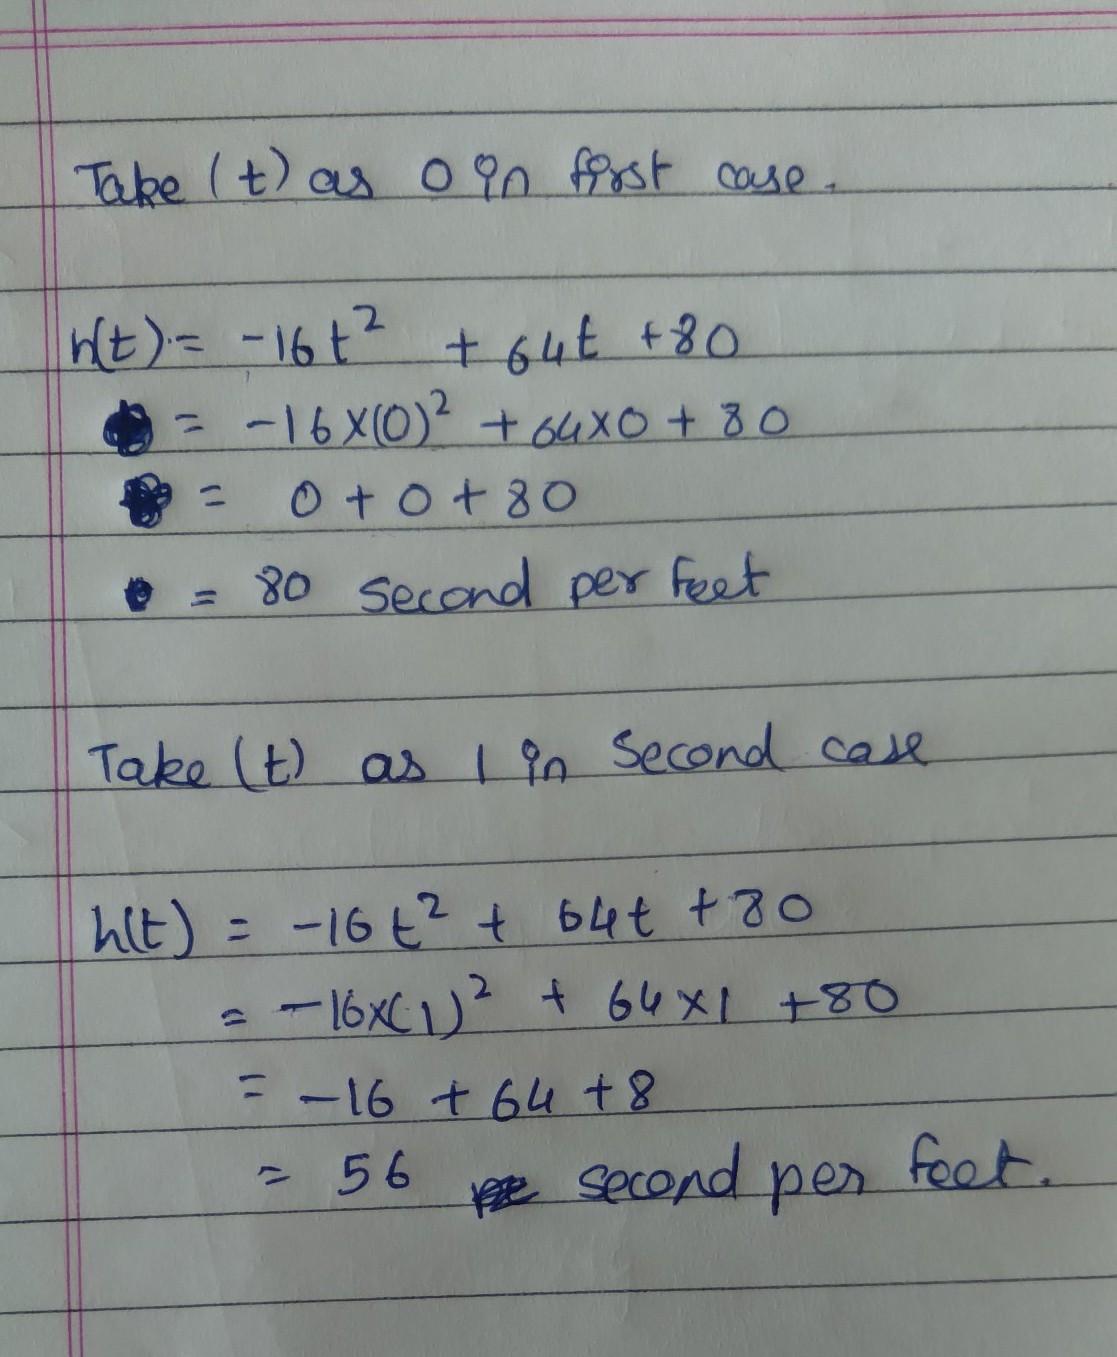 Take (t) as 0 in first case.
h(t) = -16t² + 64t +80
= -16×(0)² + 64×0 + 80
= 0 + 0 + 80
= 80 second per feet
Take (t) as 1 in second case
h(t) = -16t² + 64t +80
= -16×(1)² + 64×1 +80
= -16 + 64 +8
= 56 second per feet.